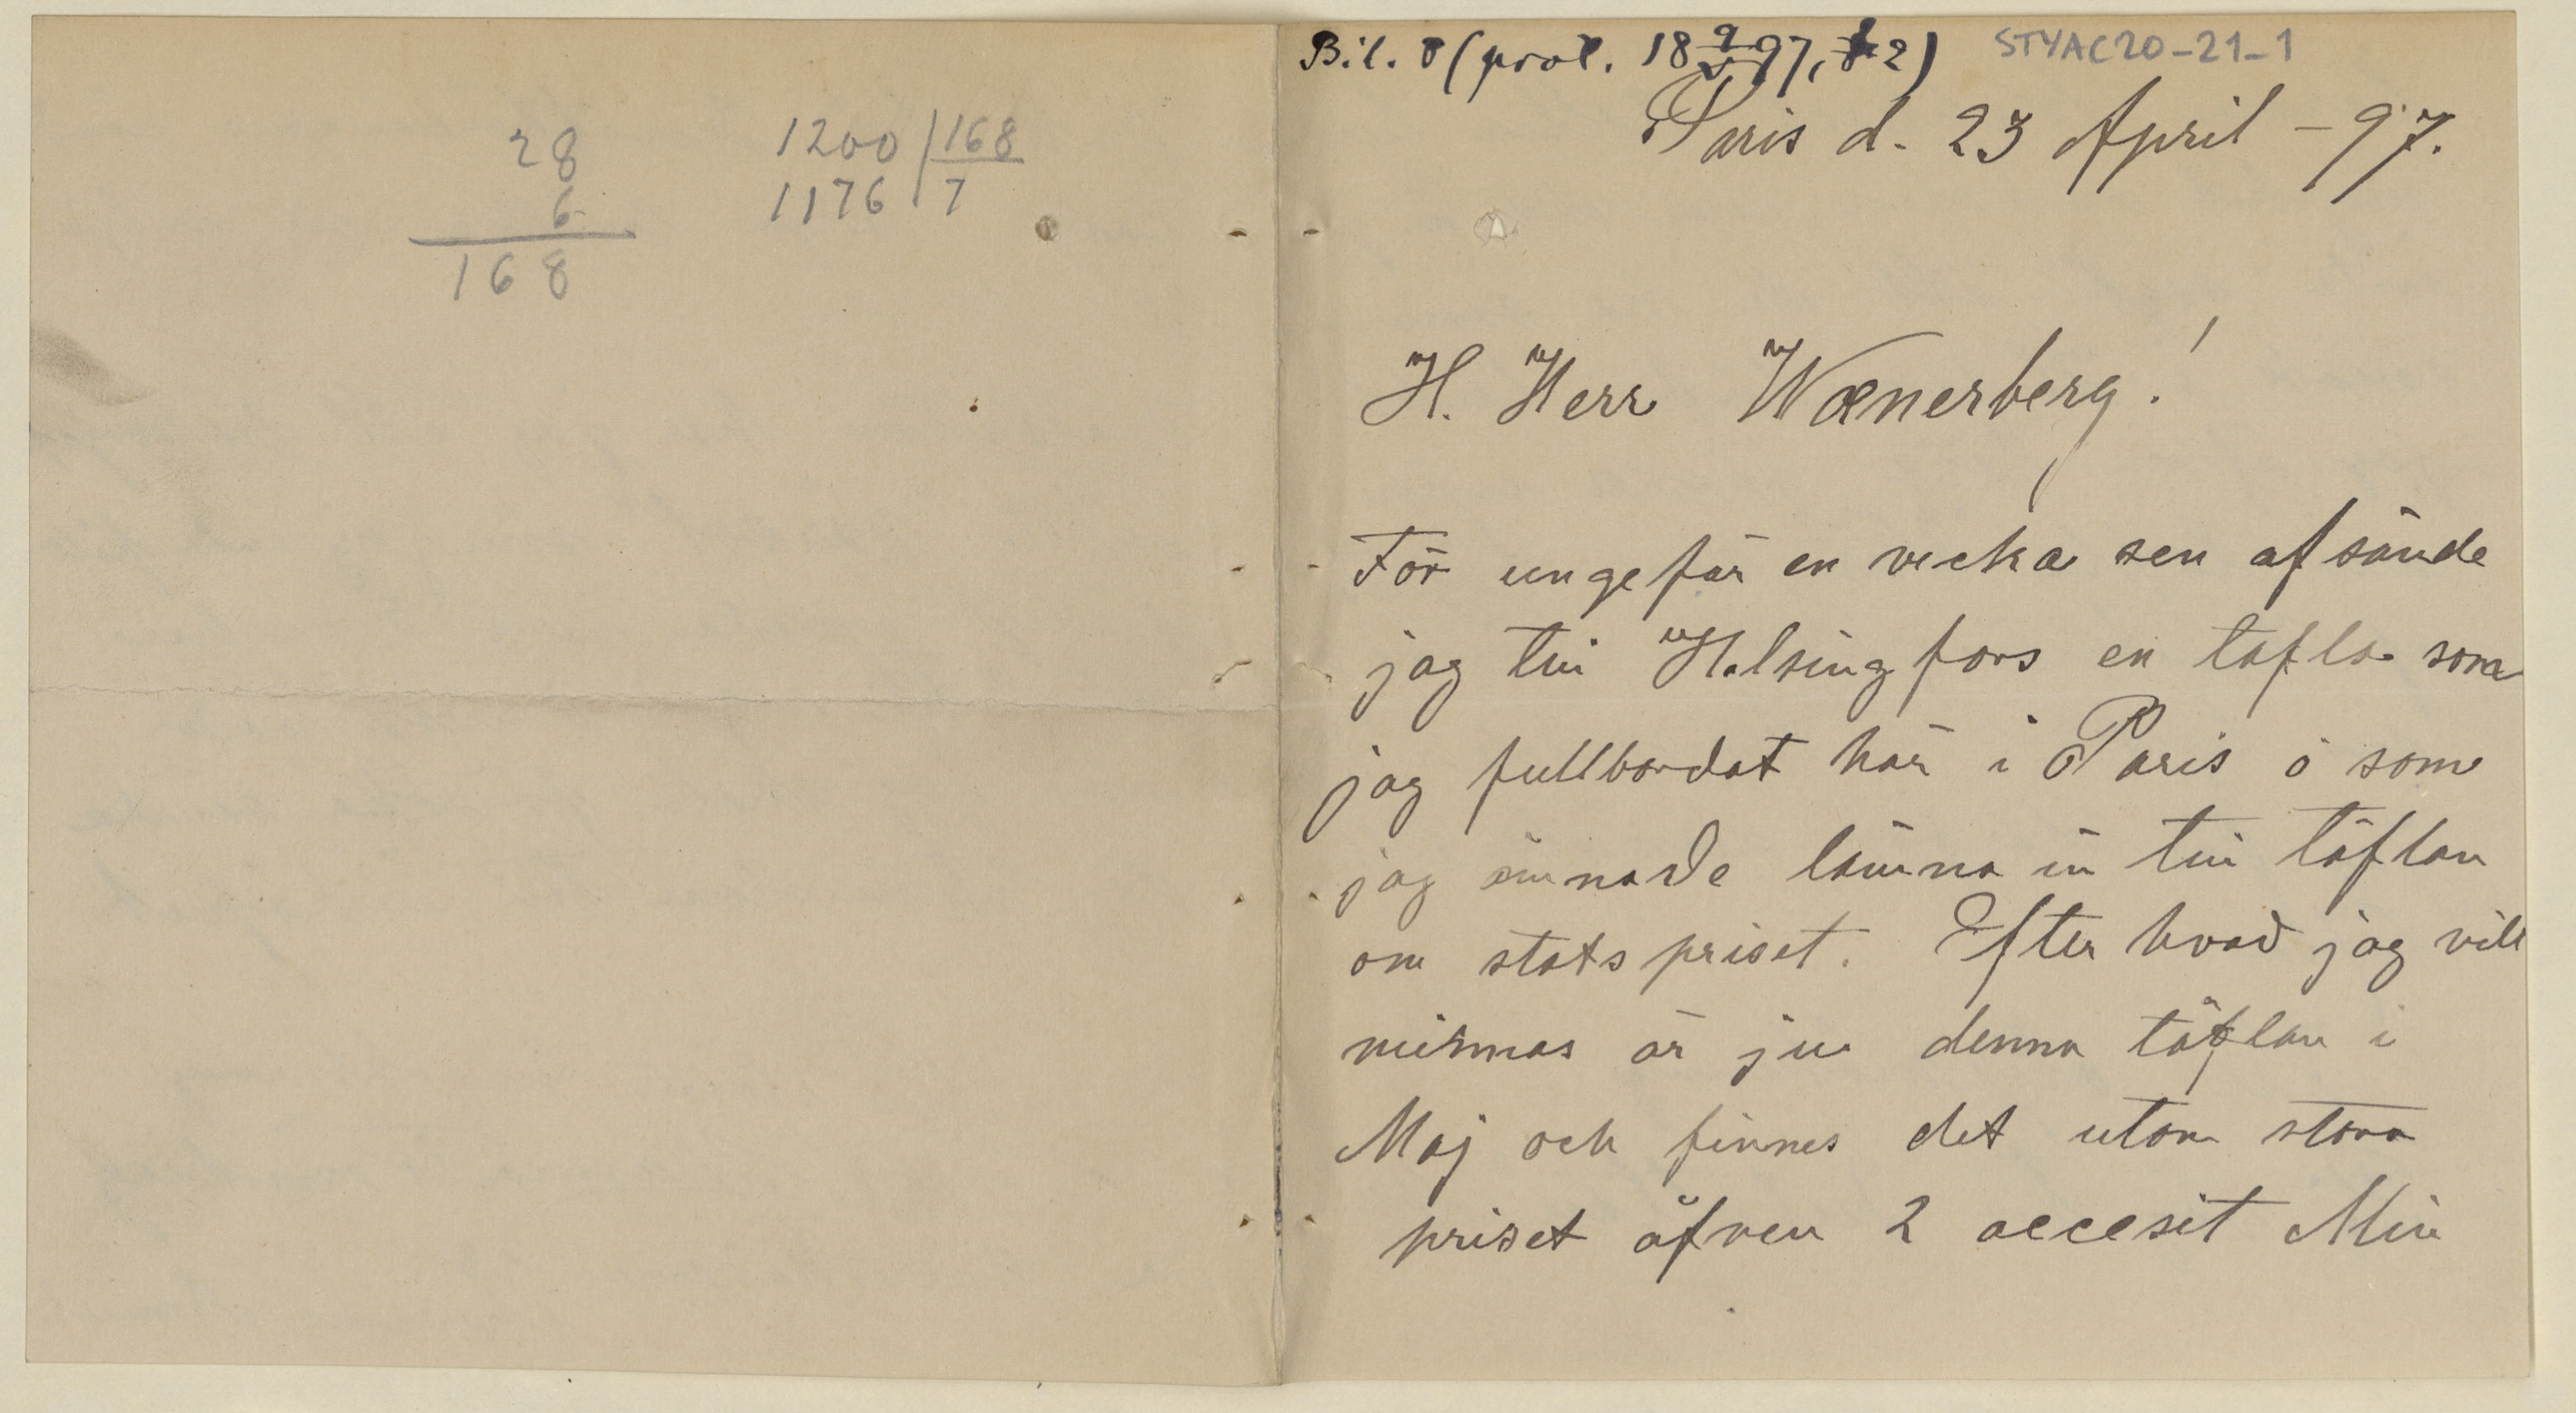 28
6
168
1200 | 168
1176 | 7
Bil. 8 (prot. 18 9/V 97, § 2)
STYAC20-21-1
Paris d. 23 April -97.
H. Herr Wænerberg!
För ungefär en vecka sen afsände
jag till Helsingfors en tafla som
jag fullbordat här i Paris o som
jag ämnade lämna in till täflan
om statspriset. Efter hvad jag vill
minnas är ju denna täflan i
Maj och finnes det utom stora
priset äfven 2 accesit Min